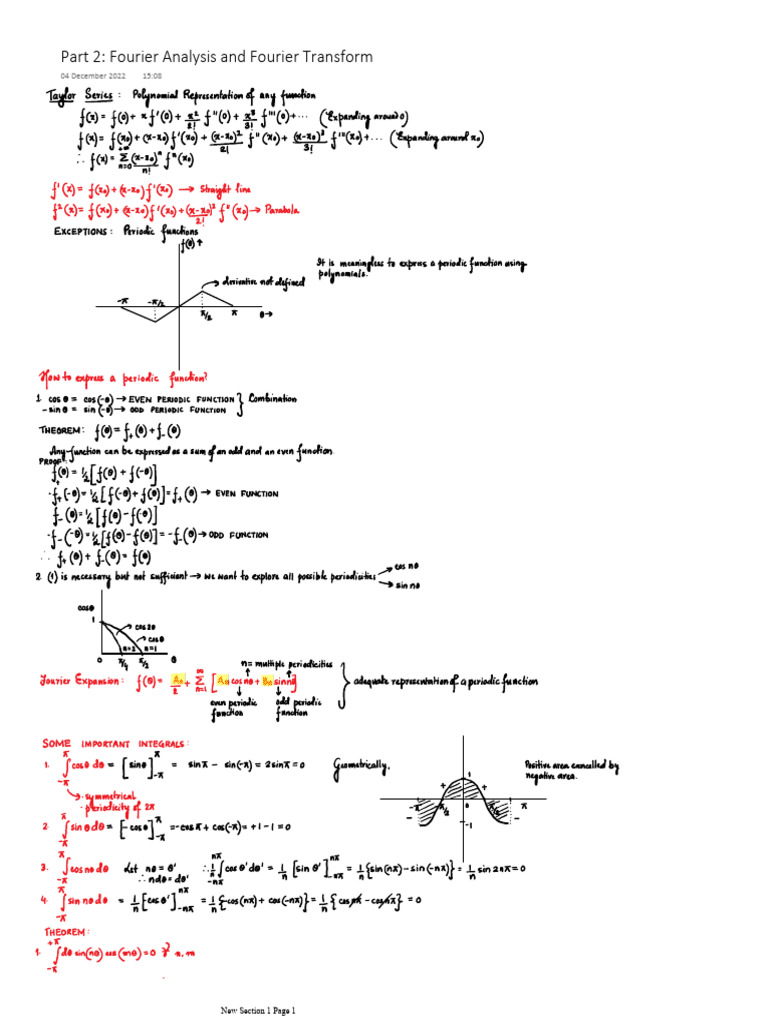 Part 2: Fourier Analysis and Fourier Transform
04 December 2022 15:08
Taylor Series: Polynomial Representation of any function
f(x) = f(0) + x f'(0) + x²/2! f''(0) + x³/3! f'''(0) + ... (Expanding around 0)
f(x) = f(x₀) + (x-x₀) f'(x₀) + (x-x₀)²/2! f''(x₀) + (x-x₀)³/3! f'''(x₀) + ... (Expanding around x₀)
∴ f(x) = Σ_{n=0}^{+∞} (x-x₀)ⁿ/n! fⁿ(x₀)
f'(x) = f(x₀) + (x-x₀) f'(x₀) → Straight line
f²(x) = f(x₀) + (x-x₀) f'(x₀) + (x-x₀)²/2! f''(x₀) → Parabola
EXCEPTIONS: Periodic functions
f(θ)↑
It is meaningless to express a periodic function using
polynomials.
derivative not defined
-π -π/2 π/2 π θ→
How to express a periodic function?
1. cos θ = cos(-θ) → EVEN PERIODIC FUNCTION } Combination
-sin θ = sin(-θ) → ODD PERIODIC FUNCTION
THEOREM: f(θ) = f₊(θ) + f₋(θ)
Any function can be expressed as a sum of an odd and an even function.
PROOF:
f₊(θ) = ½[f(θ) + f(-θ)]
·f₊(-θ) = ½[f(-θ) + f(θ)] = f₊(θ) → EVEN FUNCTION
f₋(θ) = ½[f(θ) - f(-θ)]
·f₋(-θ) = ½[f(-θ) - f(θ)] = -f₋(θ) → ODD FUNCTION
∴ f₊(θ) + f₋(θ) = f(θ)
2. (1) is necessary but not sufficient → we want to explore all possible periodicities → cos nθ
→ sin nθ
cosθ
1
cos2θ
cosθ
n=2 n=1
0 π/4 π/2 θ
n = multiple periodicities
Fourier Expansion: f(θ) = A₀/2 + Σ_{n=1}^{∞} [Aₙ cos nθ + Bₙ sin nθ] } adequate representation of a periodic function
even periodic function
odd periodic function
SOME IMPORTANT INTEGRALS:
1. ∫_{-π}^{π} cosθ dθ = [sinθ]_{-π}^{π} = sinπ - sin(-π) = 2sinπ = 0
Geometrically,
Positive area cancelled by
negative area.
1 + + -π -π/2 0 π/2 π - - -1
→ · symmetrical
· periodicity of 2π
2. ∫_{-π}^{π} sinθ dθ = [-cosθ]_{-π}^{π} = -cosπ + cos(-π) = +1 - 1 = 0
3. ∫_{-π}^{π} cos nθ dθ Let nθ = θ' ∴ 1/n ∫_{-nπ}^{nπ} cosθ' dθ' = 1/n [sin θ']_{-nπ}^{nπ} = 1/n {sin(nπ) - sin(-nπ)} = 1/n sin 2nπ = 0
∴ ndθ = dθ'
4. ∫_{-π}^{π} sin nθ dθ = 1/n [cos θ']_{-nπ}^{nπ} = 1/n {-cos(nπ) + cos(-nπ)} = 1/n {cosnπ - cosnπ} = 0
THEOREM:
1. ∫_{-π}^{+π} dθ sin(nθ) cos(mθ) = 0 n, m
New Section 1 Page 1